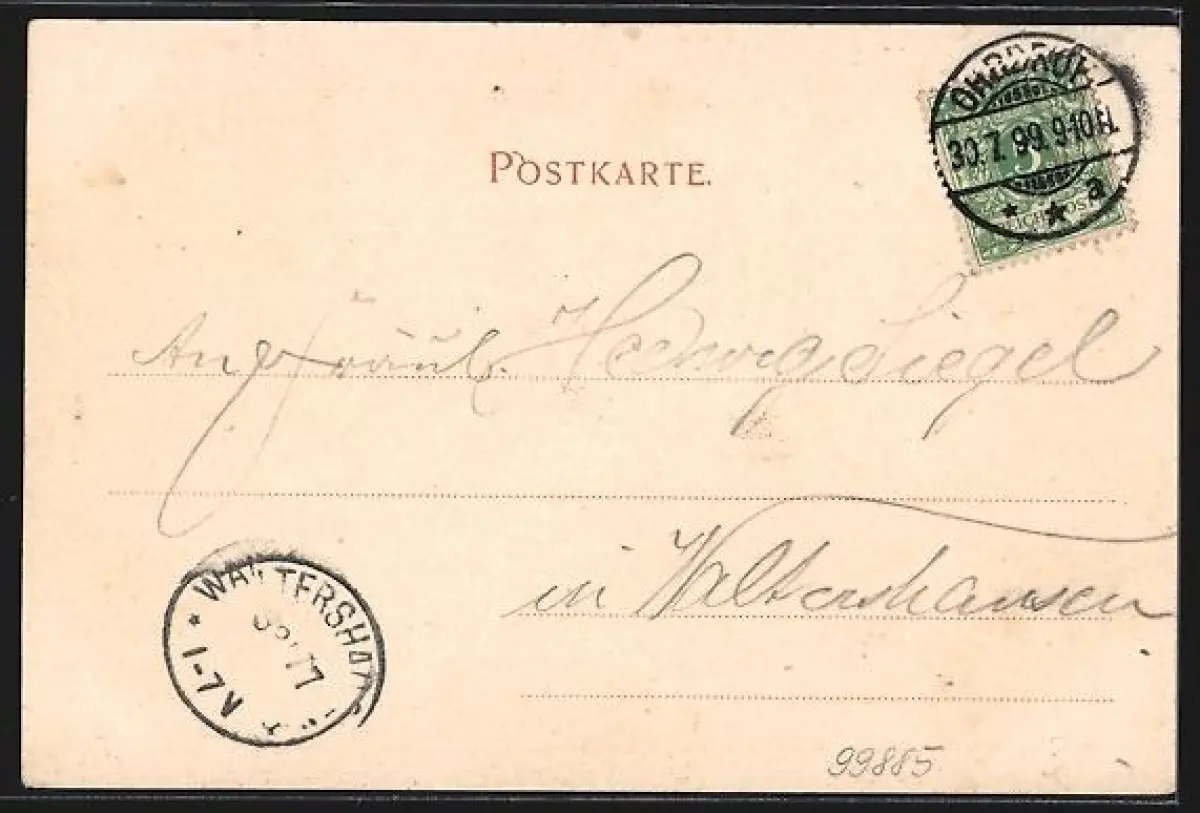 POSTKARTE.
OHRDRUF
30.7.99. 9-10N.
* * a
5
REICHSPOST
An Fräul. Hedwig Siegel
in Waltershausen
* WALTERSHAUSEN
1-2N
99885